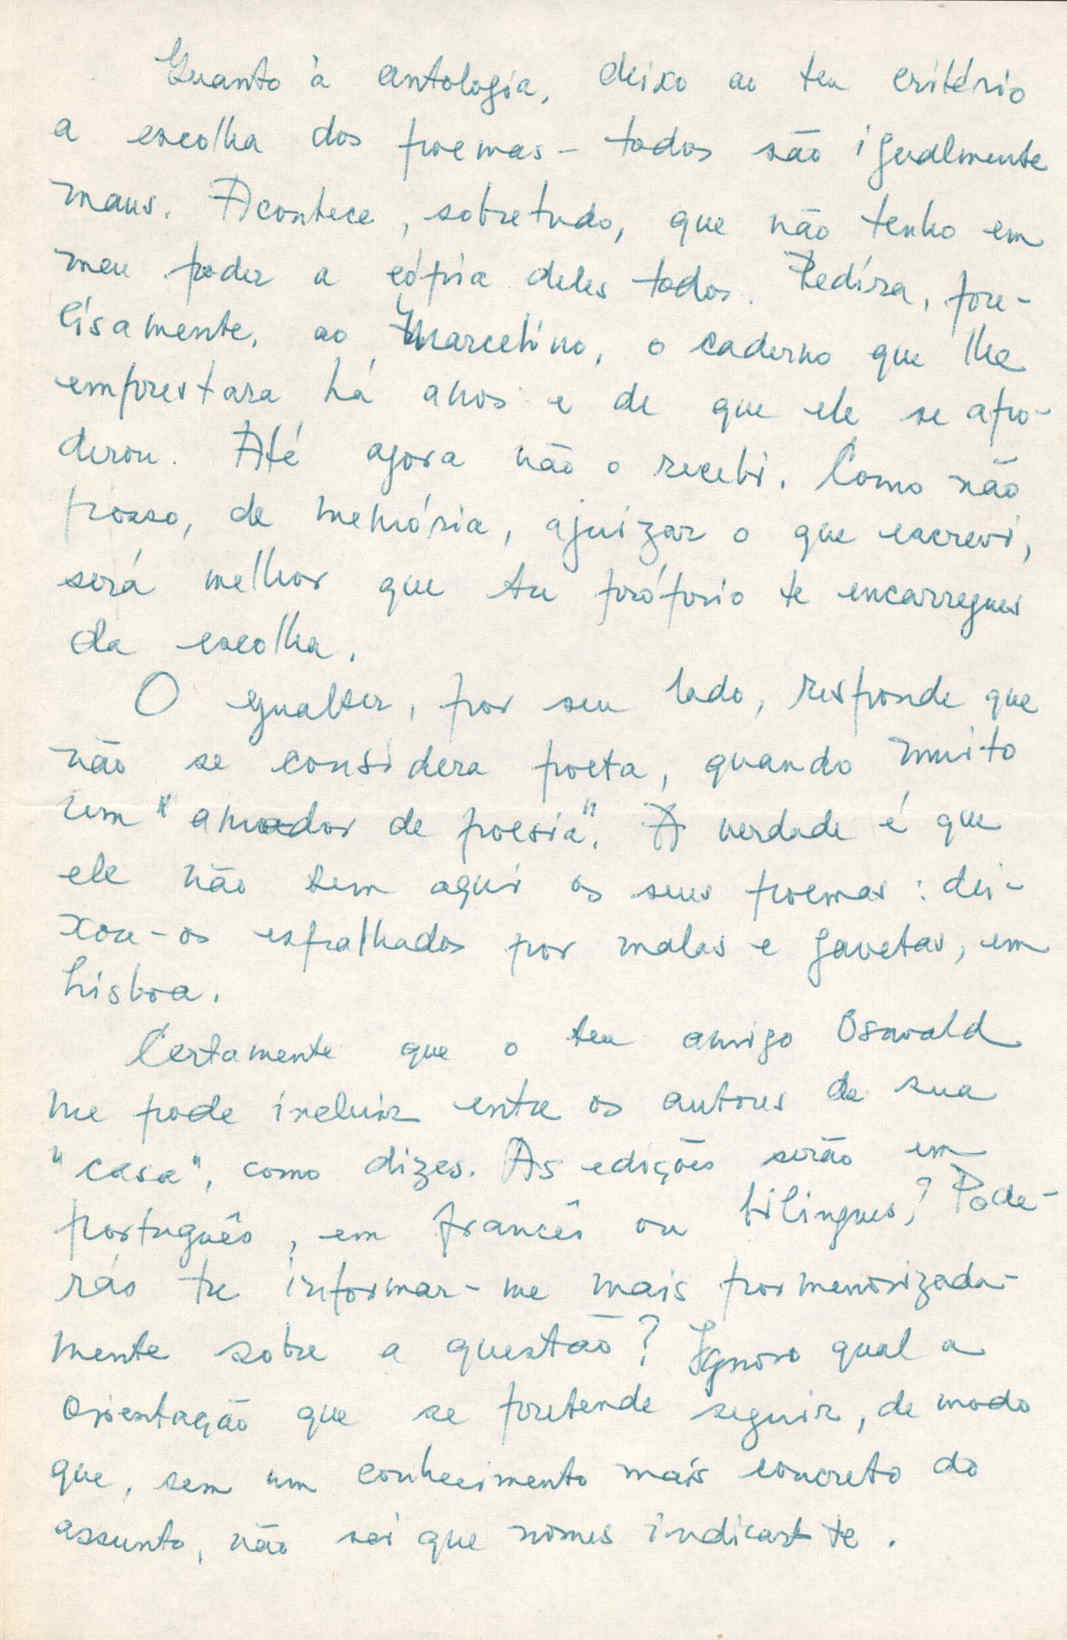 Quanto à antologia, deixo ao teu critério
a escolha dos poemas - todos são igualmente
maus. Acontece, sobretudo, que não tenho em
meu poder a cópia deles todos. Pedira, pre-
cisamente, ao Marcelino, o caderno que lhe
emprestara há anos e de que ele se apo-
derou. Até agora não o recebi. Como não
posso, de memória, ajuizar o que escrevi,
será melhor que tu próprio te encarregues
da escolha.
O Gualter, por seu lado, responde que
não se considera poeta, quando muito
um "amador de poesia". A verdade é que
ele não tem aqui os seus poemas: dei-
xou-os espalhados por malas e gavetas, em
Lisboa.
Certamente que o teu amigo Oswald
me pode incluir entre os autores da sua
"casa", como dizes. As edições serão em
português, em francês ou bilingues? Pode-
rás tu informar-me mais pormenorizada-
mente sobre a questão? Ignoro qual a
orientação que se pretende seguir, de modo
que, sem um conhecimento mais concreto do
assunto, não sei que nomes indicar-te.